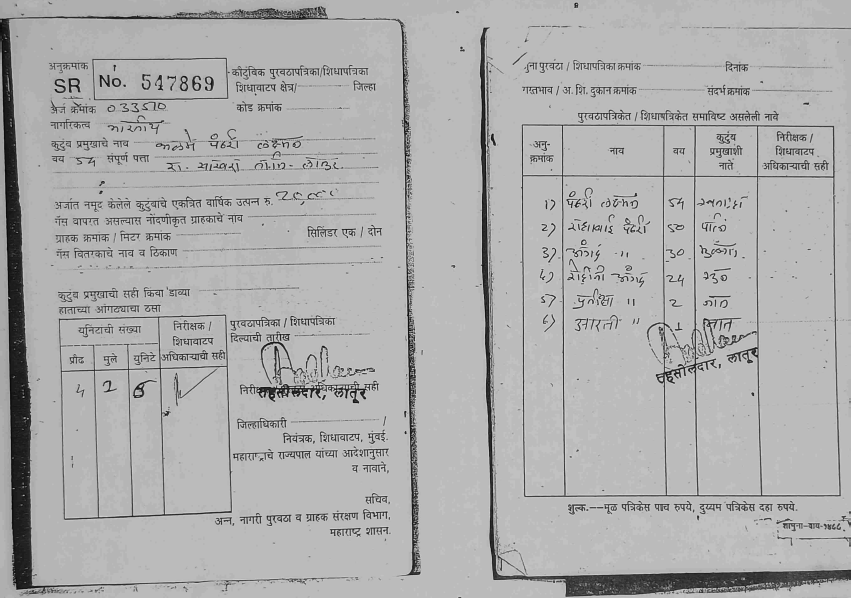 अनुक्रमांक
SR No. 547869
कौटुंबिक पुरवठापत्रिका/शिधापत्रिका
शिधावाटप क्षेत्र/ जिल्हा
अर्ज क्रमांक 033510
कोड क्रमांक
नागरिकत्व भारतीय
कुटुंब प्रमुखाचे नाव पंढरी लक्ष्मण
वय 54 संपूर्ण पत्ता
अर्जात नमूद केलेले कुटुंबाचे एकत्रित वार्षिक उत्पन्न रु.
गॅस वापरत असल्यास नोंदणीकृत ग्राहकाचे नाव
ग्राहक क्रमांक / मिटर क्रमांक सिलिंडर एक / दोन
गॅस वितरकाचे नाव व ठिकाण
कुटुंब प्रमुखाची सही किंवा डाव्या
हाताच्या आंगठ्याचा ठसा
युनिटाची संख्या
निरीक्षक / शिधावाटप अधिकाऱ्याची सही
प्रौढ मुले युनिटे
4 2
पुरवठापत्रिका / शिधापत्रिका
दिल्याची तारीख
तहसीलदार, लातूर
जिल्हाधिकारी /
नियंत्रक, शिधावाटप, मुंबई.
महाराष्ट्राचे राज्यपाल यांच्या आदेशानुसार
व नावाने,
सचिव,
अन्न, नागरी पुरवठा व ग्राहक संरक्षण विभाग,
महाराष्ट्र शासन.
जुना पुरवठा / शिधापत्रिका क्रमांक दिनांक
रास्तभाव / अ. शि. दुकान क्रमांक संदर्भ क्रमांक
पुरवठापत्रिकेत / शिधापत्रिकेत समाविष्ट असलेली नावे
अनु-क्रमांक नाव वय कुटुंब प्रमुखाशी नाते निरीक्षक / शिधावाटप अधिकाऱ्याची सही
1) पंढरी लक्ष्मण 54
2) पंढरी 50 पत्नि
3) अंगद " 30 मुलगा
4) रोहीणी अंगद 24 सून
5) प्रतीक्षा " 2 नात
6) आरती " 1 नात
तहसीलदार, लातूर
शुल्क.--मूळ पत्रिकेस पाच रुपये, दुय्यम पत्रिकेस दहा रुपये.